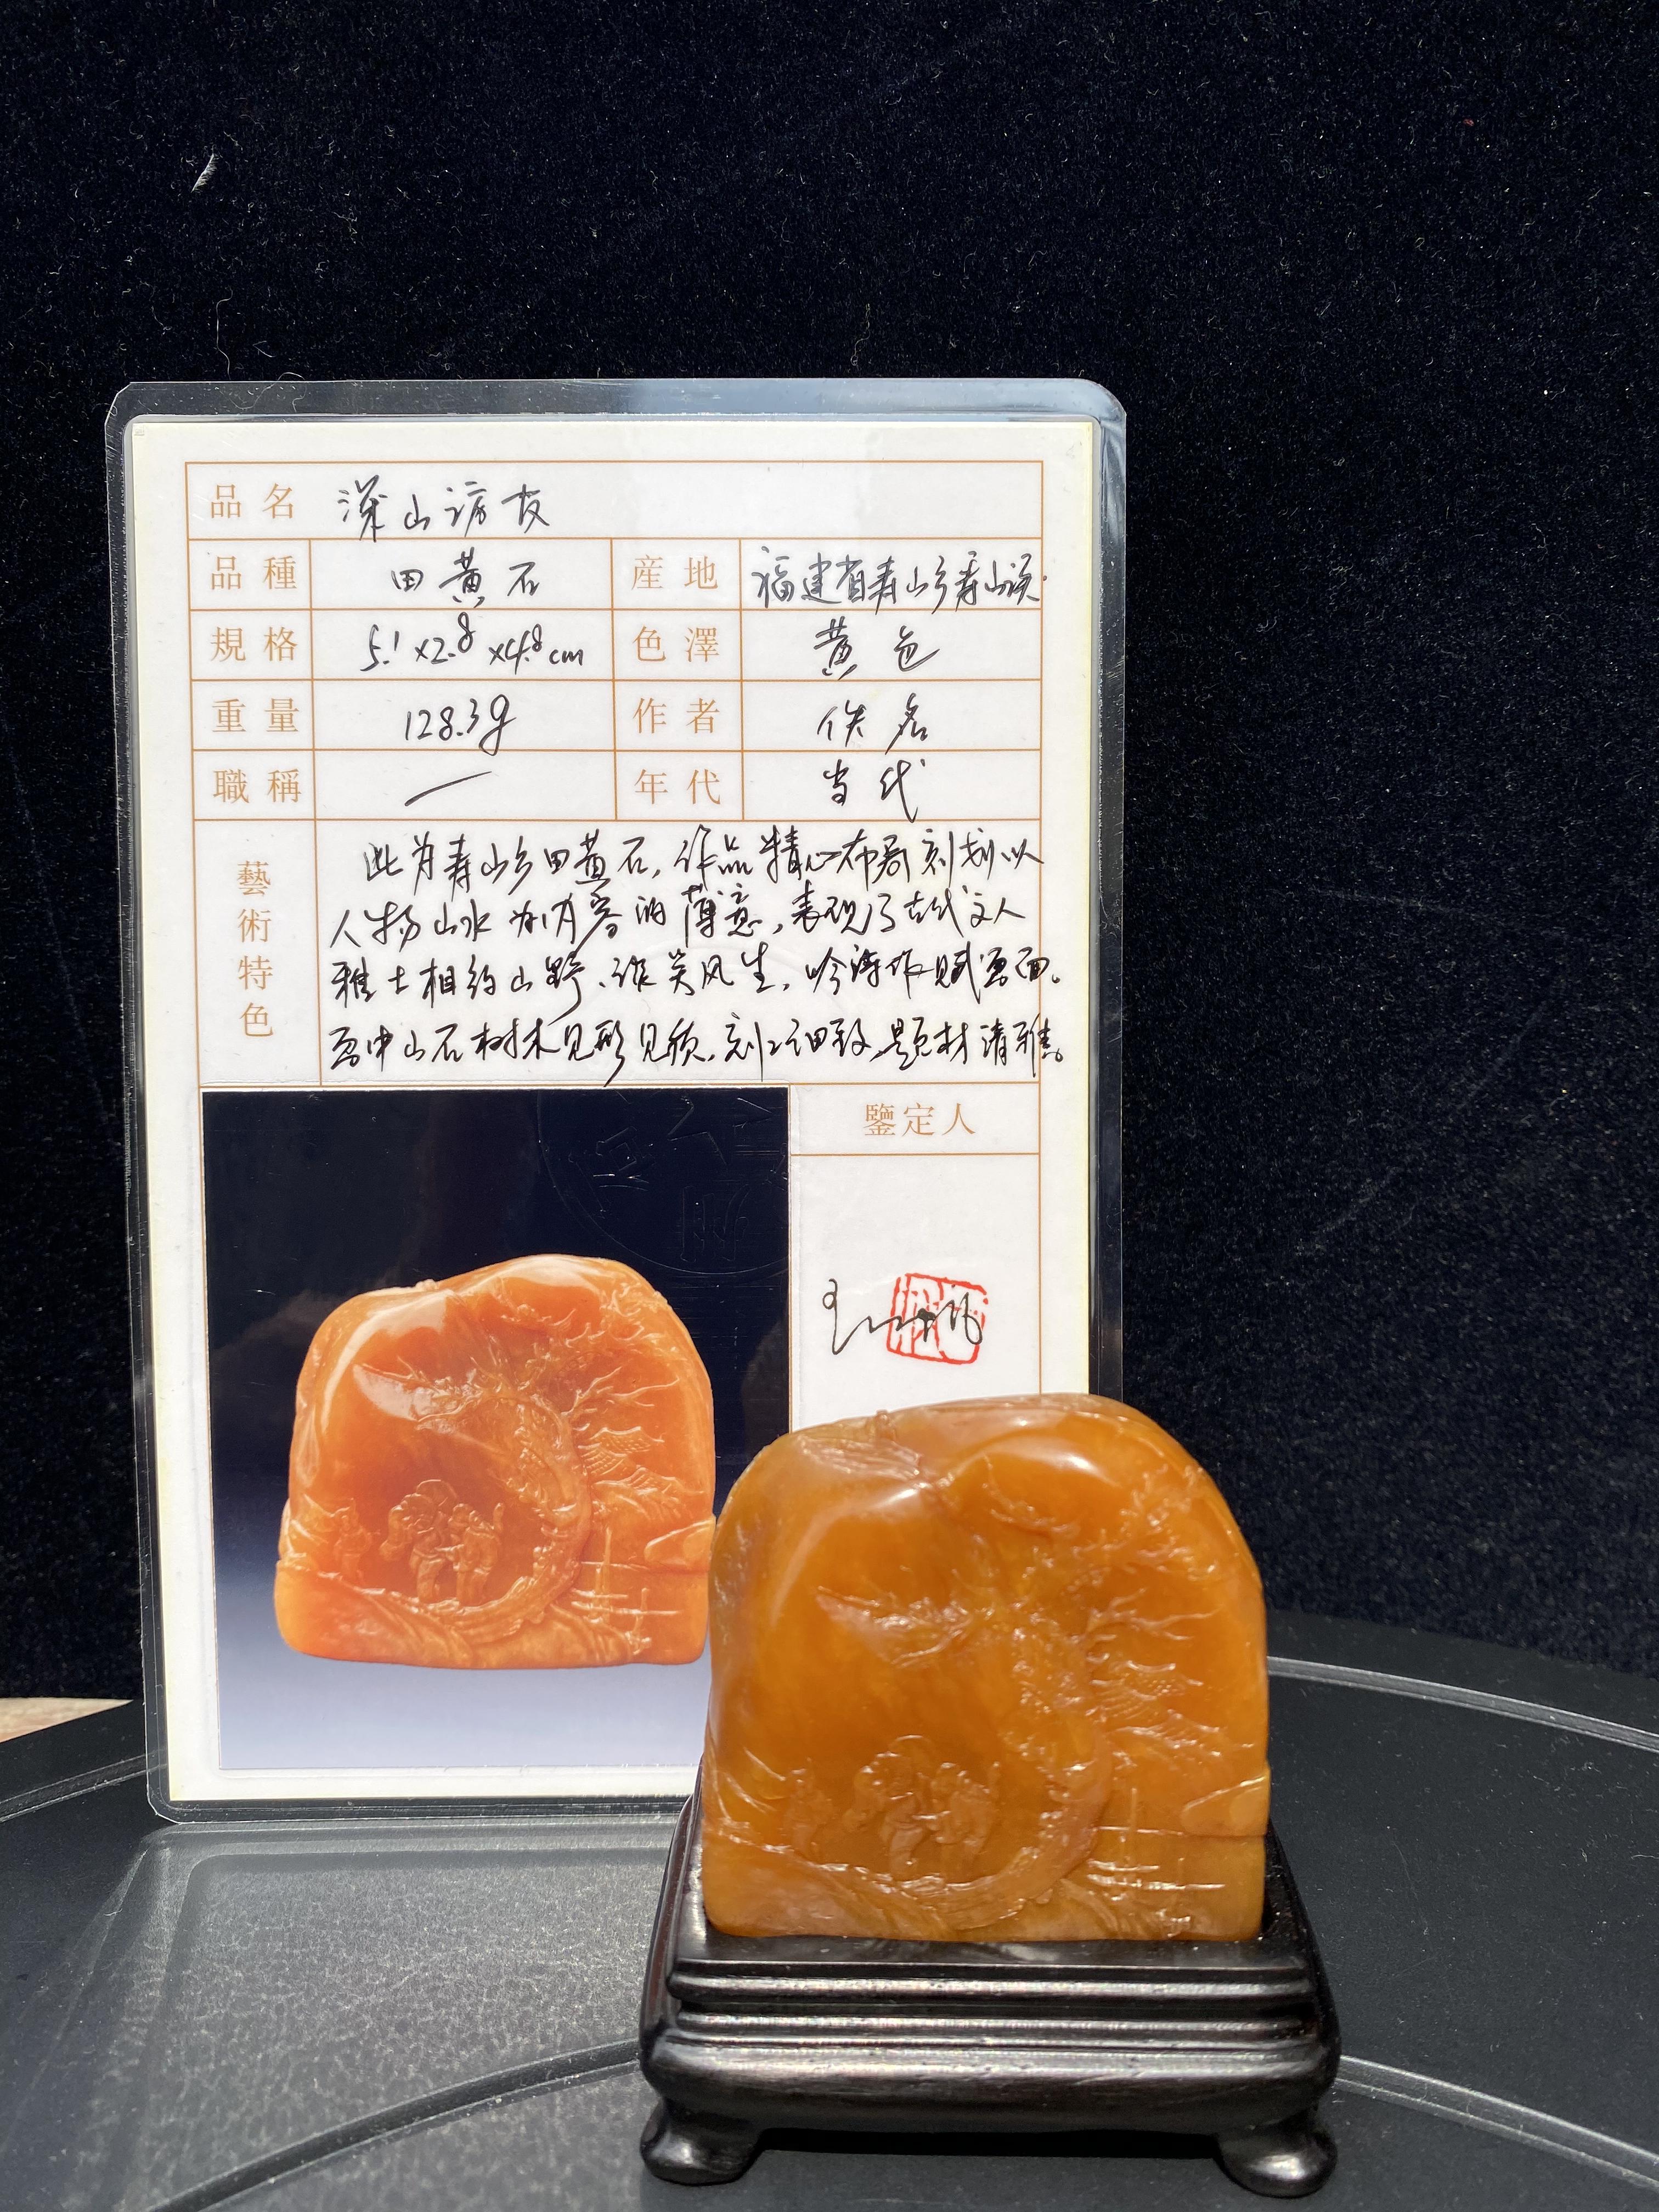 品名 深山访友
品種 田黄石 産地 福建省寿山乡寿山溪
規格 5.1×2.8×4.8cm 色澤 黄色
重量 128.3g 作者 佚名
職稱 一 年代 当代
藝術特色
此为寿山乡田黄石,作品精心布局刻划以
人物山水为内容的薄意,表现了古代文人
雅士相约山野、谈笑风生,吟诗作赋画面。
画中山石树木见形见质,刻工细致,题材清雅。
鑒定人